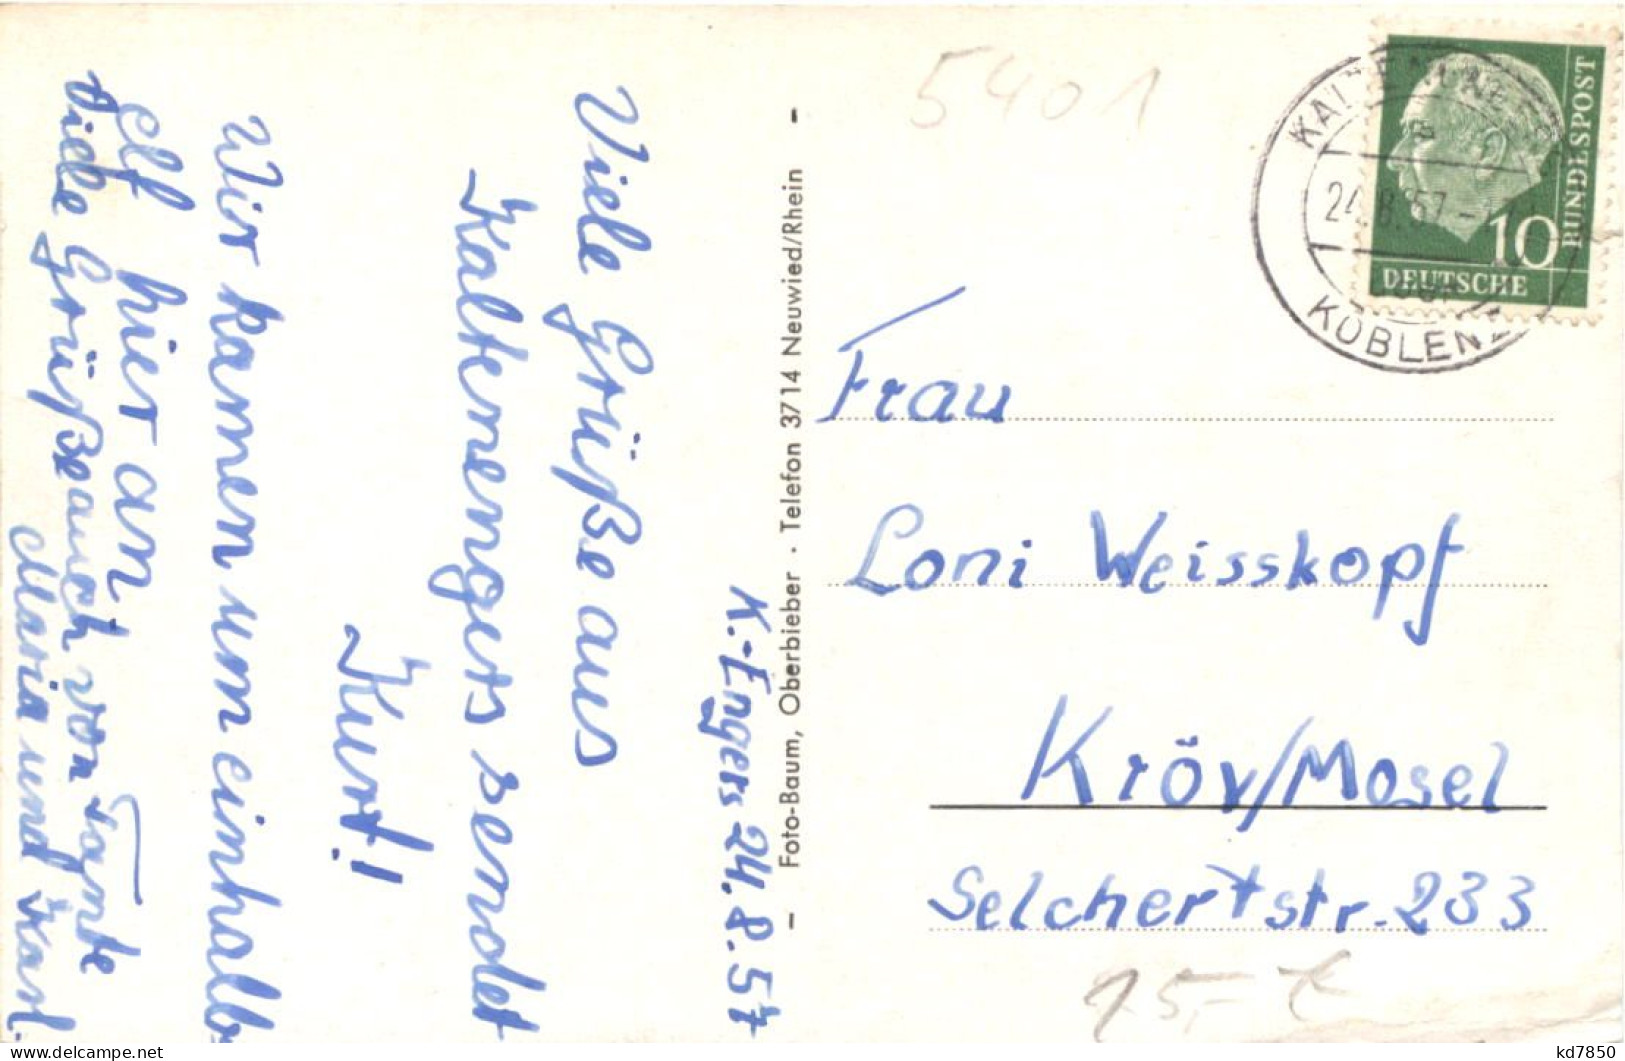 K.-Engers 24.8.57
Viele Grüße aus
Kaltenengers sendet
Kurt!
Wir kamen um einhalb
elf hier an
Viele Grüße auch von Tante
Maria und Karl.
– Foto-Baum, Oberbieber · Telefon 3714 Neuwied/Rhein –
5401
24.8.57
KOBLENZ
10
DEUTSCHE
BUNDESPOST
Frau
Loni Weisskopf
Kröv/Mosel
Selchertstr. 233
delcampe.net
kd7850